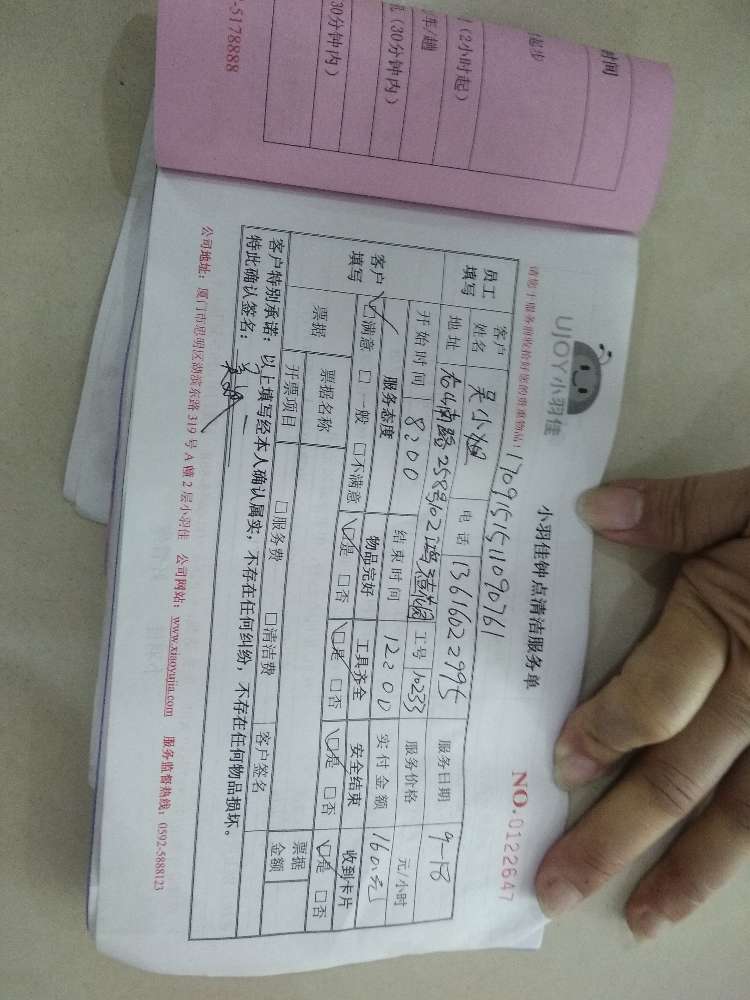 时间
起步
(2小时起)
车/趟
(30分钟内)
30分钟内)
-5178888
UJOY小羽佳
小羽佳钟点清洁服务单
NO.0122647
请您于服务前收拾好您的贵重物品!
1709151511090761
员工填写 客户姓名 吴小姐 电话 13616022995 服务日期 9-18
地址 工号 10233 服务价格 元/小时
开始时间 8:00 结束时间 12:00 实付金额 160元
客户填写 服务态度 物品完好 工具齐全 安全结束 收到卡片
☑满意 □一般 □不满意 ☑是 □否 ☑是 □否 ☑是 □否 ☑是 □否
票据 票据名称 票据金额
开票项目 □服务费 □清洁费 客户签名
客户特别承诺:以上填写经本人确认属实,不存在任何纠纷,不存在任何物品损坏。
特此确认签名:
公司地址:厦门市思明区湖滨东路319号A幢2层小羽佳 公司网站:www.xiaoyujia.com 服务监督热线:0592-5888123